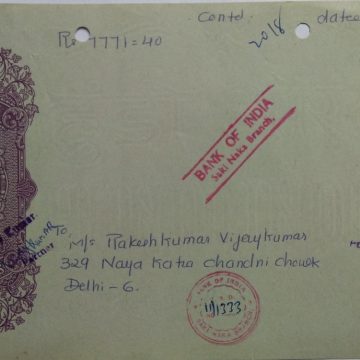 Contd. 2018 date
Rs 7771=40
BANK OF INDIA
Saki Naka Branch,
Kumar
To,
M/s Rakeshkumar Vijaykumar
329 Naya Katra Chandni Chowk
Delhi - 6.
BANK OF INDIA
11/1333
SAKI NAKA BRANCH